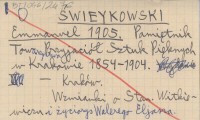 ŚWIEYKOWSKI
Emmanuel 1905. Pamiętnik
Tow. Przyjaciół Sztuk Pięknych
w Krakowie 1854-1904.
— Kraków.
Wzmianki o Stan. Witkie-
wiczu i życiorys Walerego Eljasza.